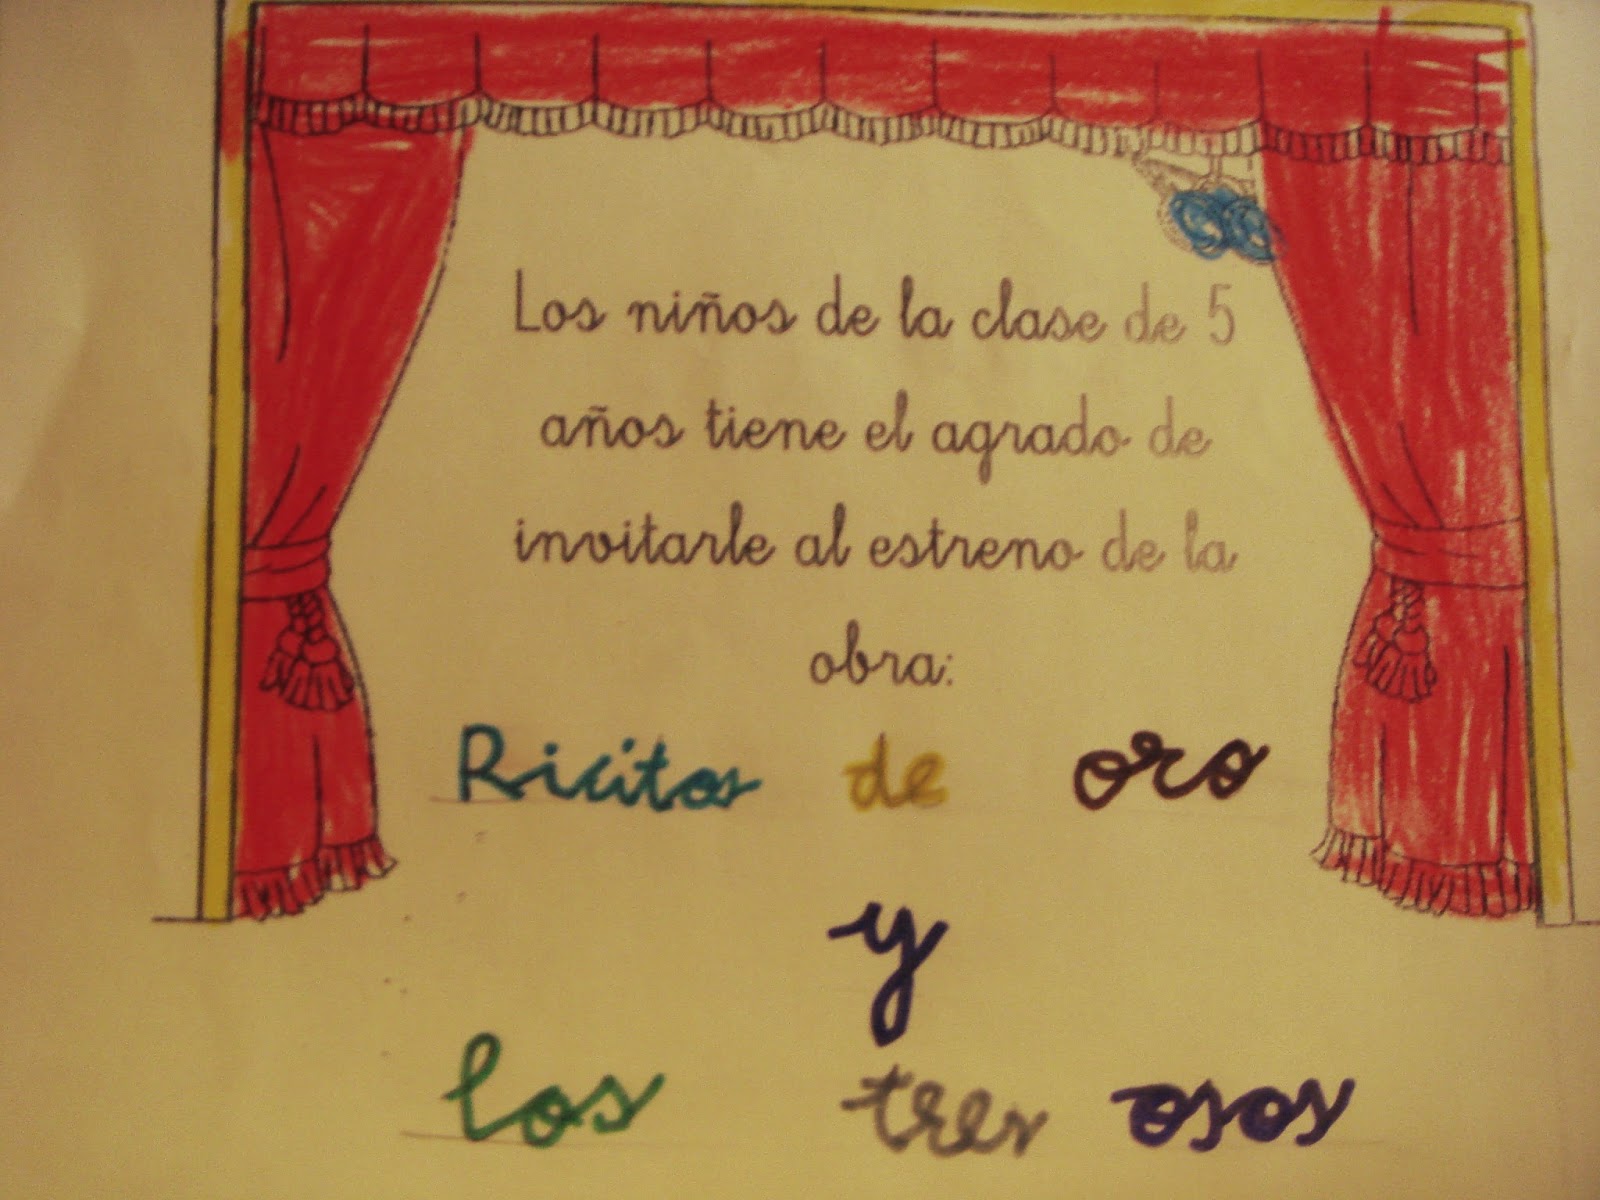 Los niños de la clase de 5
años tiene el agrado de
invitarle al estreno de la
obra:
Ricitos de oro
y
los tres osos